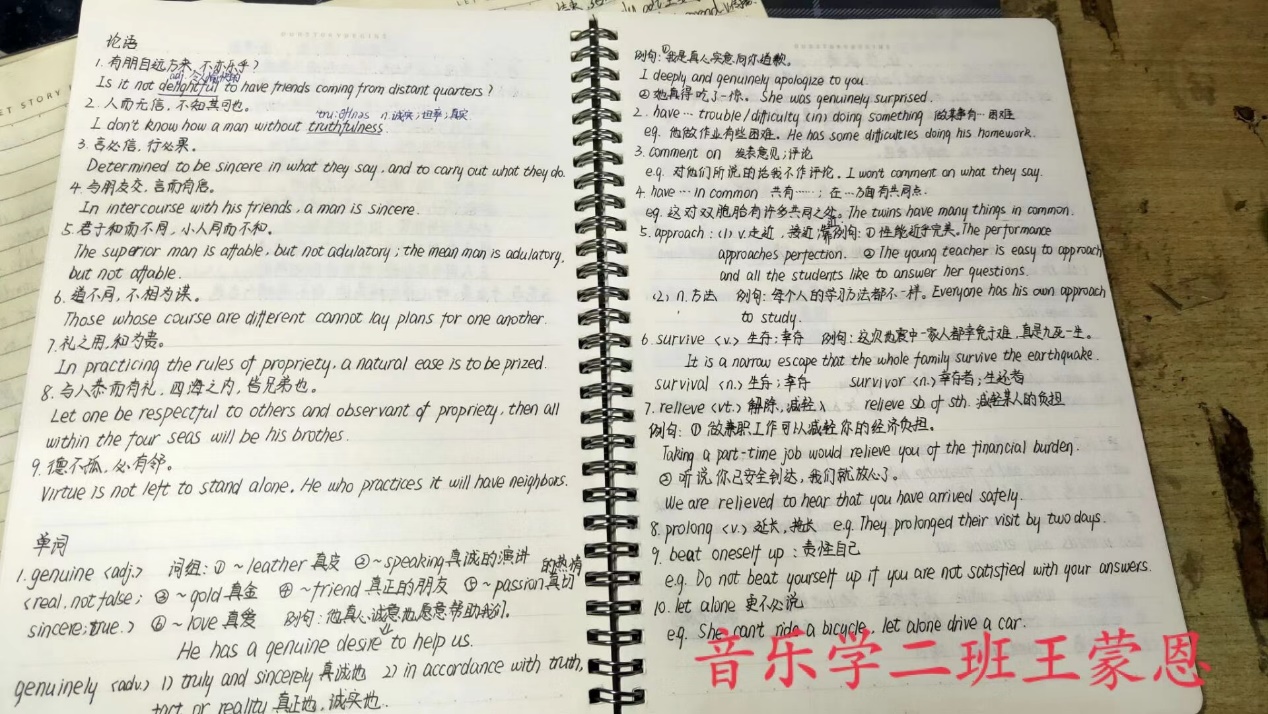 论语
1. 有朋自远方来,不亦乐乎?
adj. 令人愉快的
Is it not delightful to have friends coming from distant quarters?
2. 人而无信,不知其可也。
n. 诚实;坦率;真实
I don't know how a man without truthfulness.
3. 言必信,行必果。
Determined to be sincere in what they say, and to carry out what they do.
4. 与朋友交,言而有信。
In intercourse with his friends, a man is sincere.
5. 君子和而不同,小人同而不和。
The superior man is affable, but not adulatory; the mean man is adulatory,
but not affable.
6. 道不同,不相为谋。
Those whose course are different cannot lay plans for one another.
7. 礼之用,和为贵。
In practicing the rules of propriety, a natural ease is to be prized.
8. 与人恭而有礼,四海之内,皆兄弟也。
Let one be respectful to others and observant of propriety, then all
within the four seas will be his brothes.
9. 德不孤,必有邻。
Virtue is not left to stand alone. He who practices it will have neighbors.
单词
1. genuine <adj.> 词组:① ~leather 真皮 ② ~speaking 真诚的演讲 的热情
<real, not false; ③ ~gold 真金 ④ ~friend 真正的朋友 ⑤ ~passion 真切
sincere; true.> ⑥ ~love 真爱 例句:他真心诚意地愿意帮助我们。
He has a genuine desire to help us.
genuinely <adv.> 1) truly and sincerely 真诚地 2) in accordance with truth,
fact or reality 真正地,诚实地.
例句:①我是真心实意向你道歉。
I deeply and genuinely apologize to you.
②她真得吃了一惊。 She was genuinely surprised.
2. have … trouble/difficulty (in) doing something 做某事有…困难
eg. 他做作业有些困难。He has some difficulties doing his homework.
3. comment on 发表意见;评论
e.g. 对他们所说的话我不作评论。I wont comment on what they say.
4. have … in common 共有……;在…方面有共同点.
eg. 这对双胞胎有许多共同之处。The twins have many things in common.
5. approach: (1) v. 走近,接近,靠近 例句:①性能近乎完美。The performance
approaches perfection. ② The young teacher is easy to approach
and all the students like to answer her questions.
(2) n. 方法 例句:每个人的学习方法都不一样。Everyone has his own approach
to study.
6. survive <v.> 生存;幸存 例句:这次地震中一家人都幸免于难,真是九死一生。
It is a narrow escape that the whole family survive the earthquake.
survival <n.> 生存;幸存 survivor <n.> 幸存者;生还者
7. relieve <vt.> 解除,减轻 relieve sb. of sth. 减轻某人的负担
例句:① 做兼职工作可以减轻你的经济负担。
Taking a part-time job would relieve you of the financial burden.
② 听说你已安全到达,我们就放心了。
We are relieved to hear that you have arrived safely.
8. prolong <v.> 延长,拖长 e.g. They prolonged their visit by two days.
9. beat oneself up: 责怪自己
e.g. Do not beat yourself up if you are not satisfied with your answers.
10. let alone 更不必说
eg. She can't ride a bicycle, let alone drive a car.
音乐学二班王蒙恩